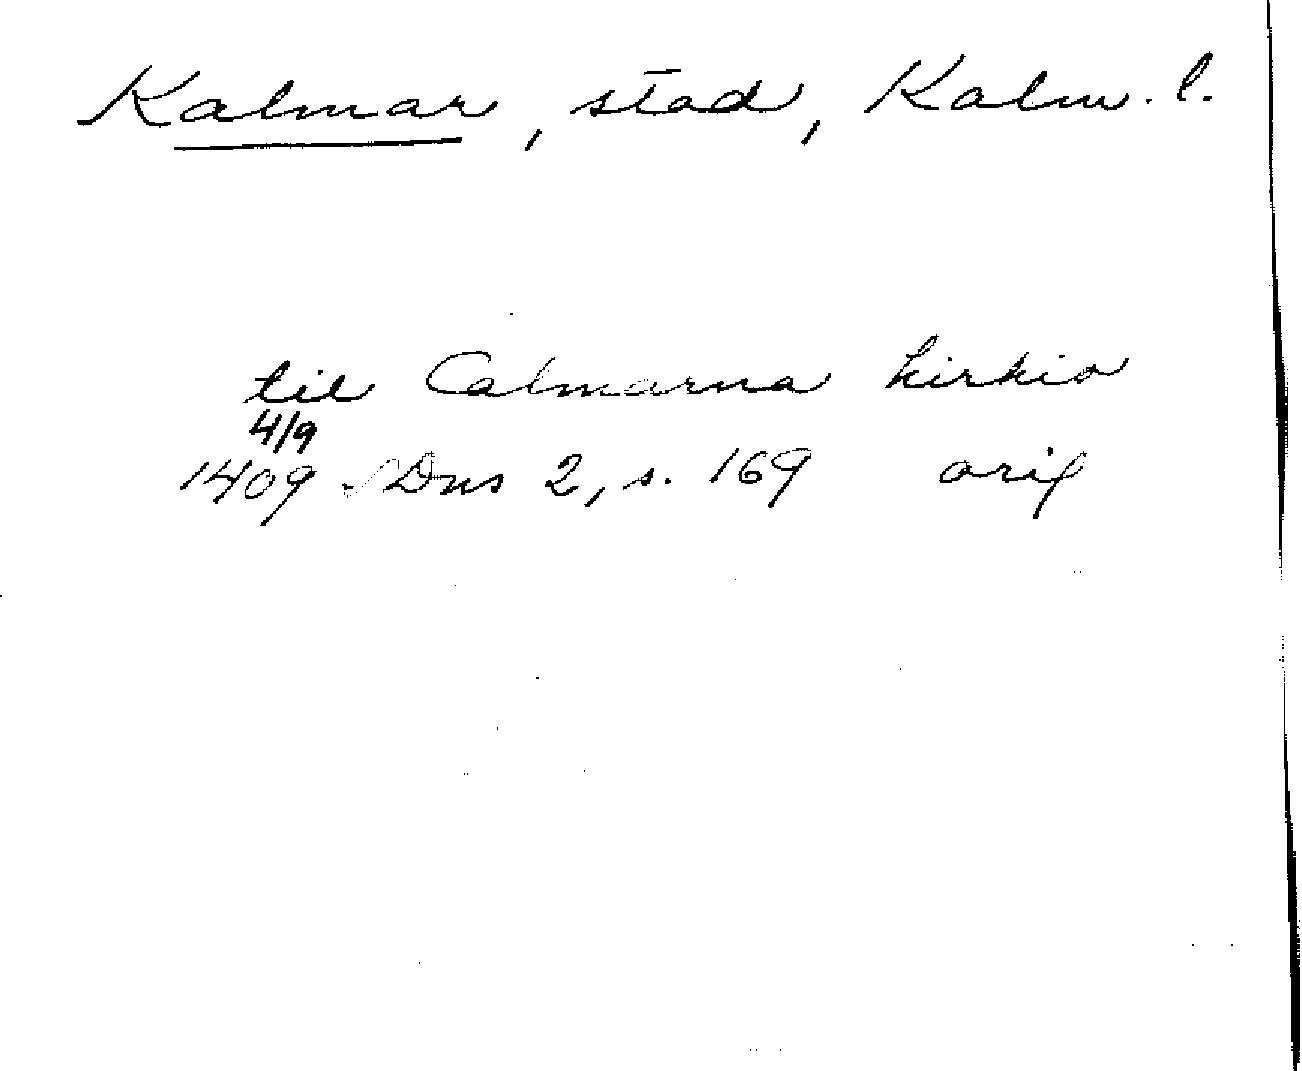 Kalmar, stad, Kalm. l.
til Calmarna kirkio
4/9
1409 SDns 2, s. 169 orig